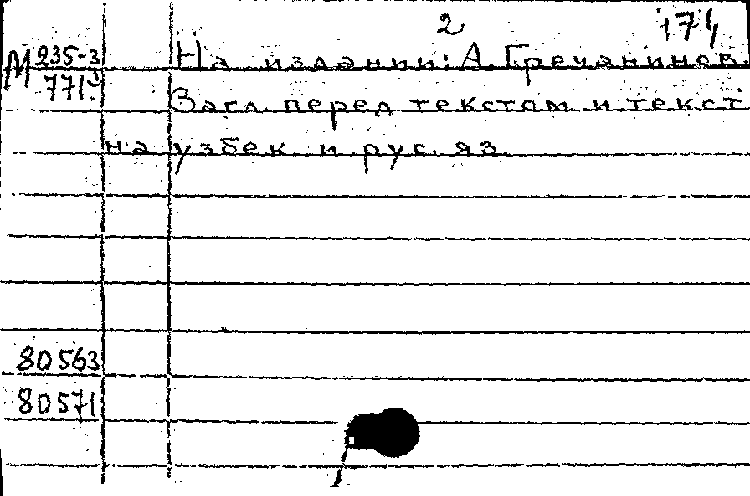 2 174
М 235-3 На издании: А. Гречанинов.
771 Загл. перед текстом и текст
на узбек. и рус. яз.
80563
80571